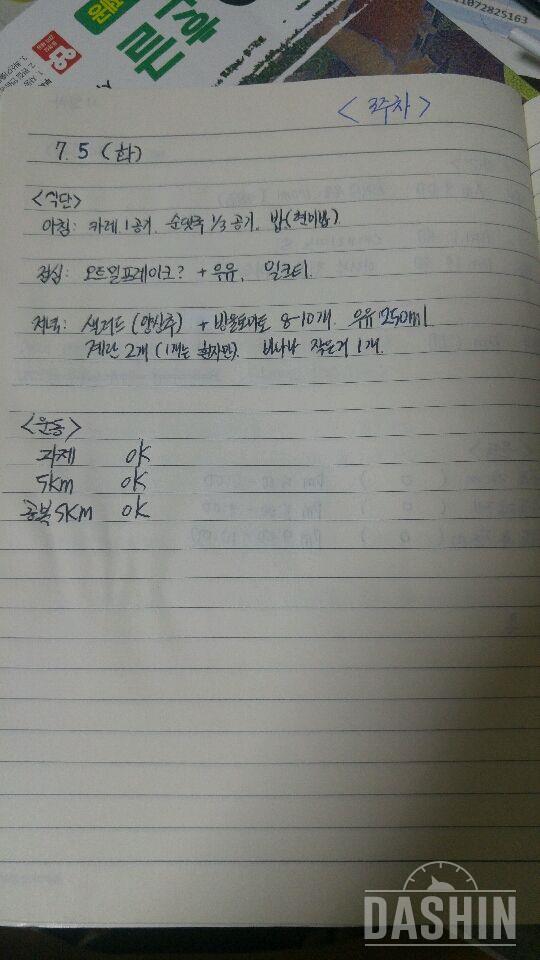 11072825163
<3주차>
7. 5 (화)
<식단>
아침: 카레 1공기. 순댓국 1/3 공기. 밥(현미밥)
점심: 오트밀프레이크? + 우유, 밀크티.
저녁: 샐러드 (양상추) + 방울토마토 8-10개. 우유 250ml
계란 2개 (1개는 흰자만). 바나나 작은거 1개.
<운동>
과제 OK
5km OK
공복 5km OK
DASHIN